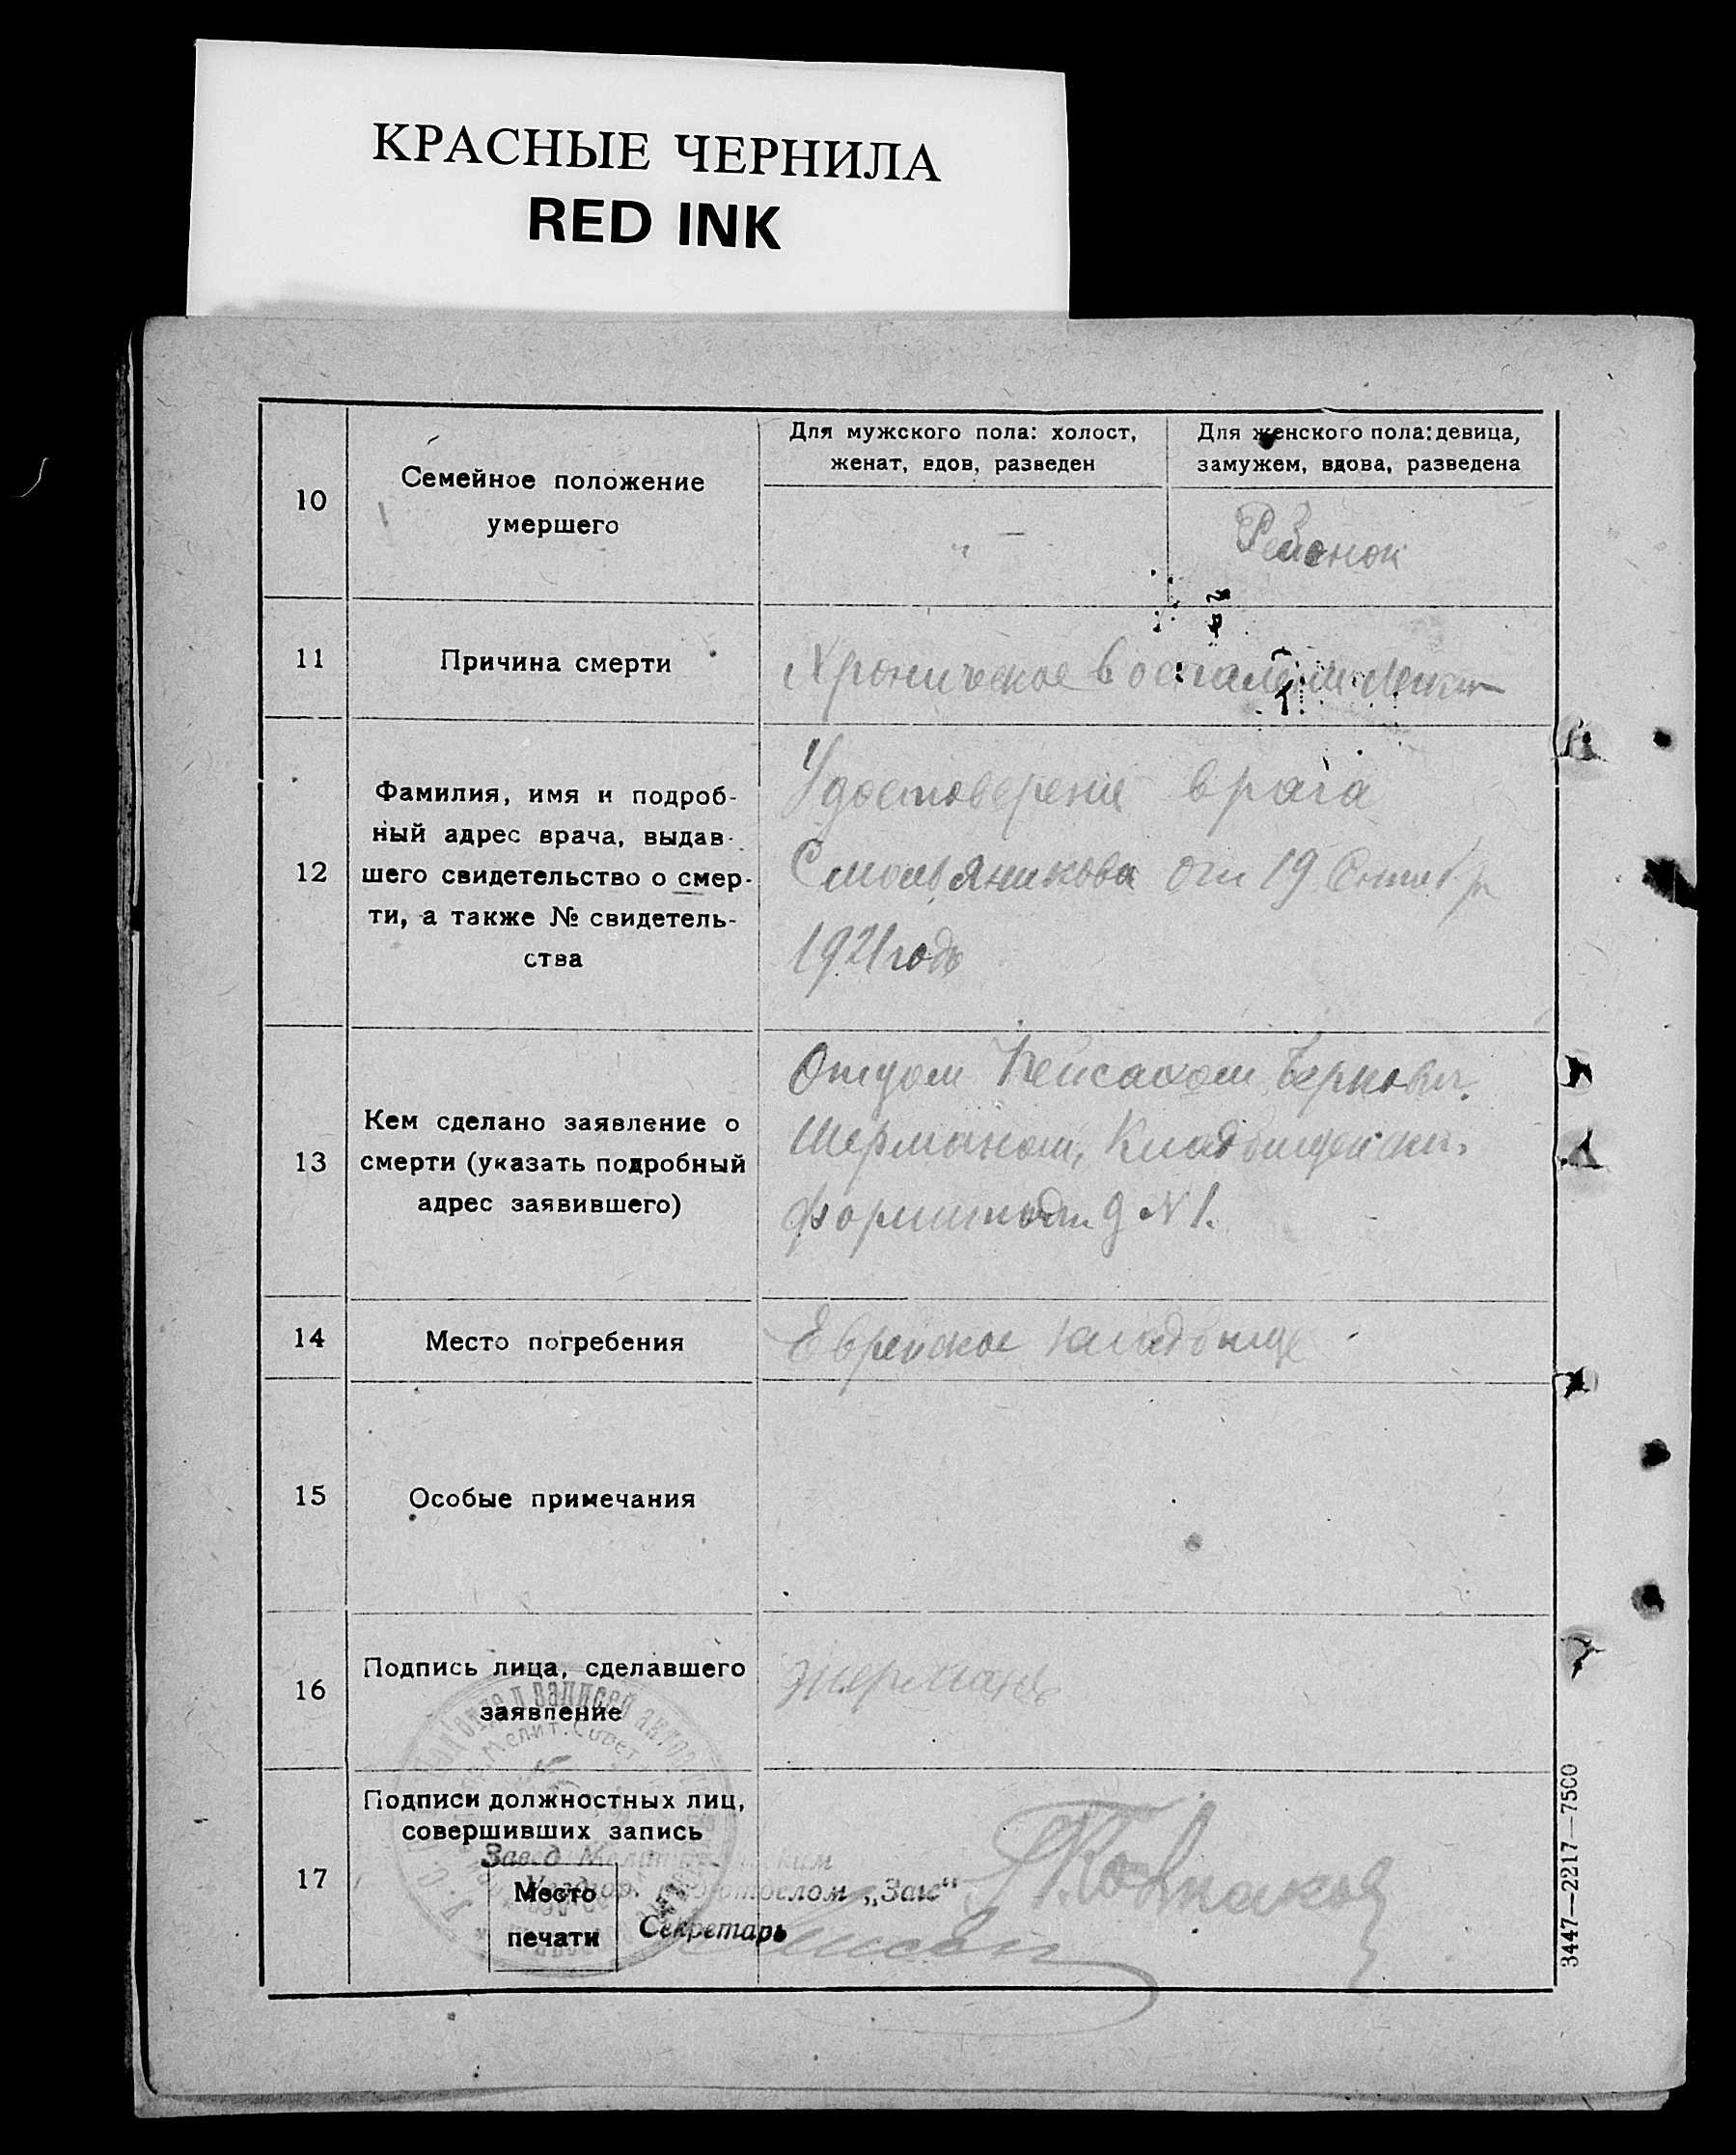 КРАСНЫЕ ЧЕРНИЛА
RED INK
10
Семейное положение
умершего
Для мужского пола: холост,
женат, вдов, разведен
Для женского пола: девица,
замужем, вдова, разведена
" —
Ребенок
11
Причина смерти
Хроническое воспаление
12
Фамилия, имя и подроб-
ный адрес врача, выдав-
шего свидетельство о смер-
ти, а также № свидетель-
ства
Удостоверение врача
Смольяникова от 19
1921 года
13
Кем сделано заявление о
смерти (указать подробный
адрес заявившего)
Отцом Пейсахом
Шерманом,
д N 1.
14
Место погребения
Еврейское кладбище
15
Особые примечания
16
Подпись лица, сделавшего
заявление
Шерманъ
17
Подписи должностных лиц,
совершивших запись
Завед
„Загс“
Место
печати
Секретарь
Мелит. Совет
3447—2217—7500